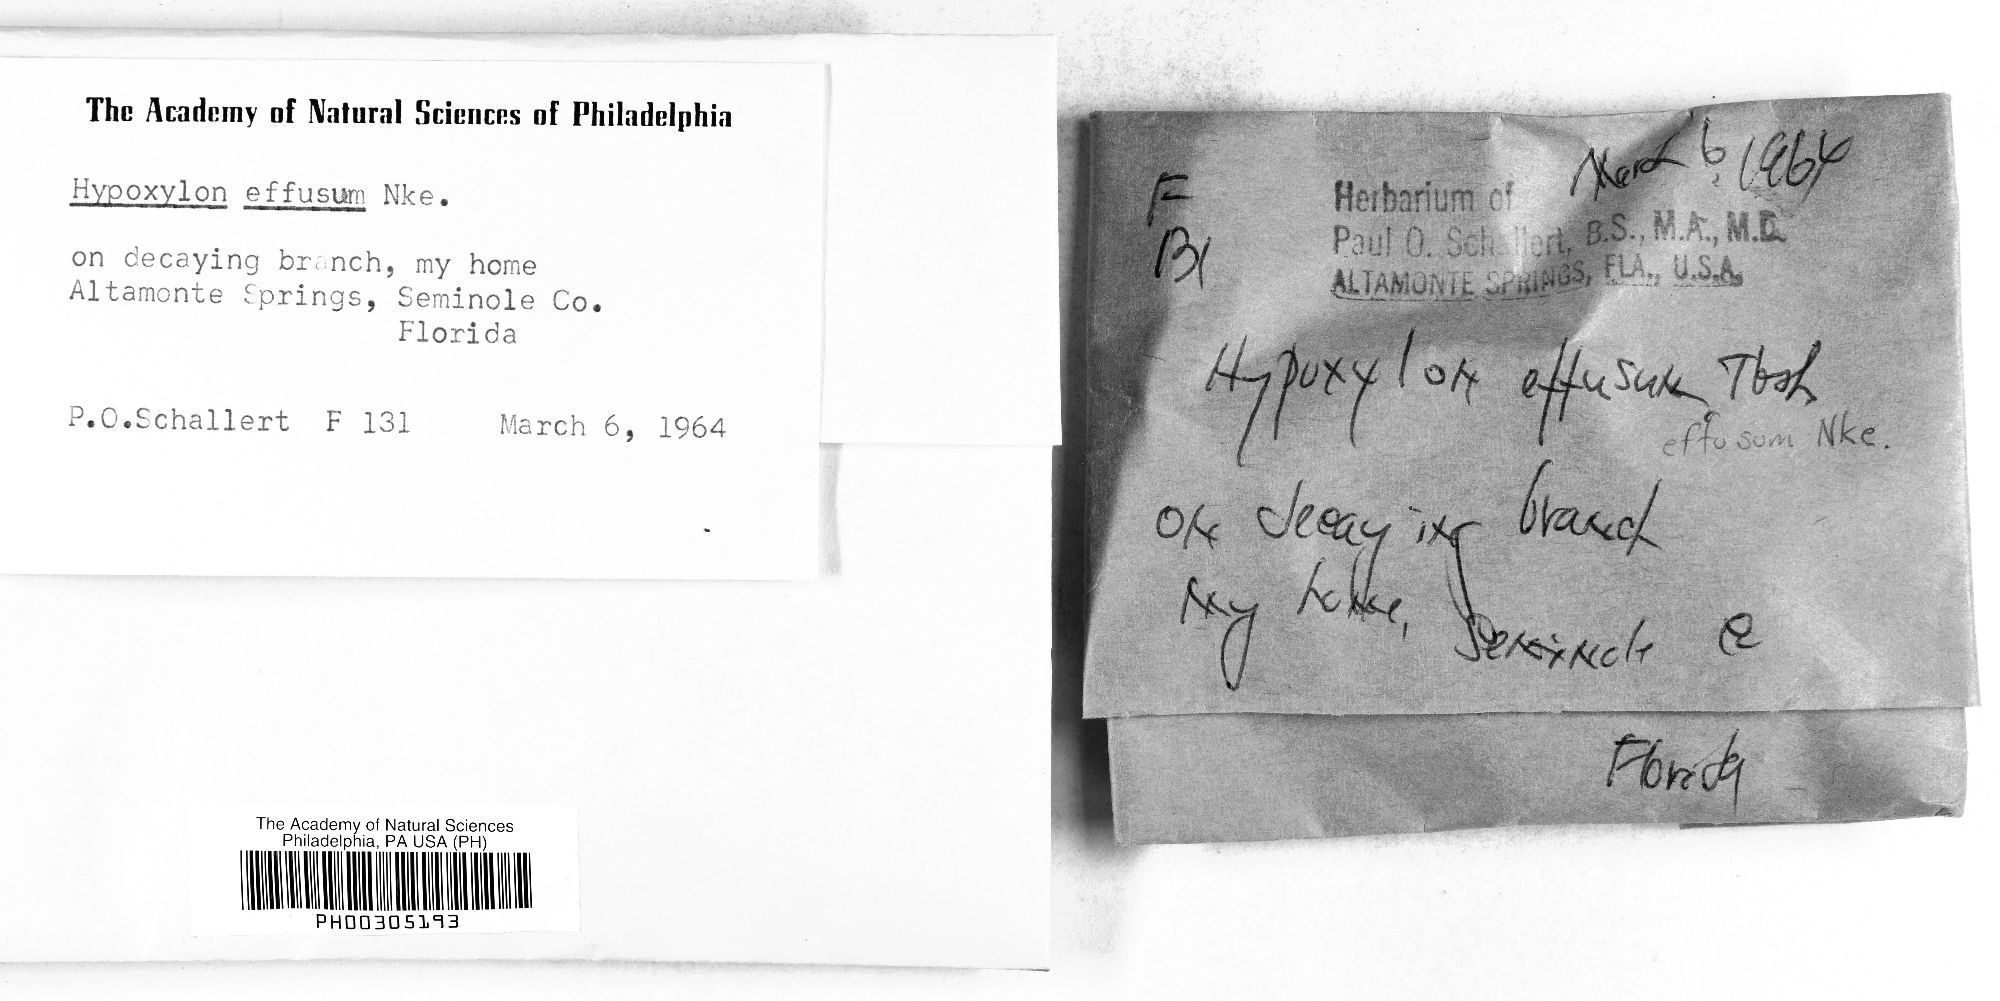 The Academy of Natural Sciences of Philadelphia
Hypoxylon effusum Nke.
on decaying branch, my home
Altamonte Springs, Seminole Co.
Florida
P.O.Schallert F 131 March 6, 1964
The Academy of Natural Sciences
Philadelphia, PA USA (PH)
PH00305193
March 6, 1964
F
131
Herbarium of
Paul O. Schallert, B.S., M.A., M.D.
ALTAMONTE SPRINGS, FLA., U.S.A.
Hypoxylon effusum
effusum Nke.
on decaying branch
my home, Seminole Co
Florida